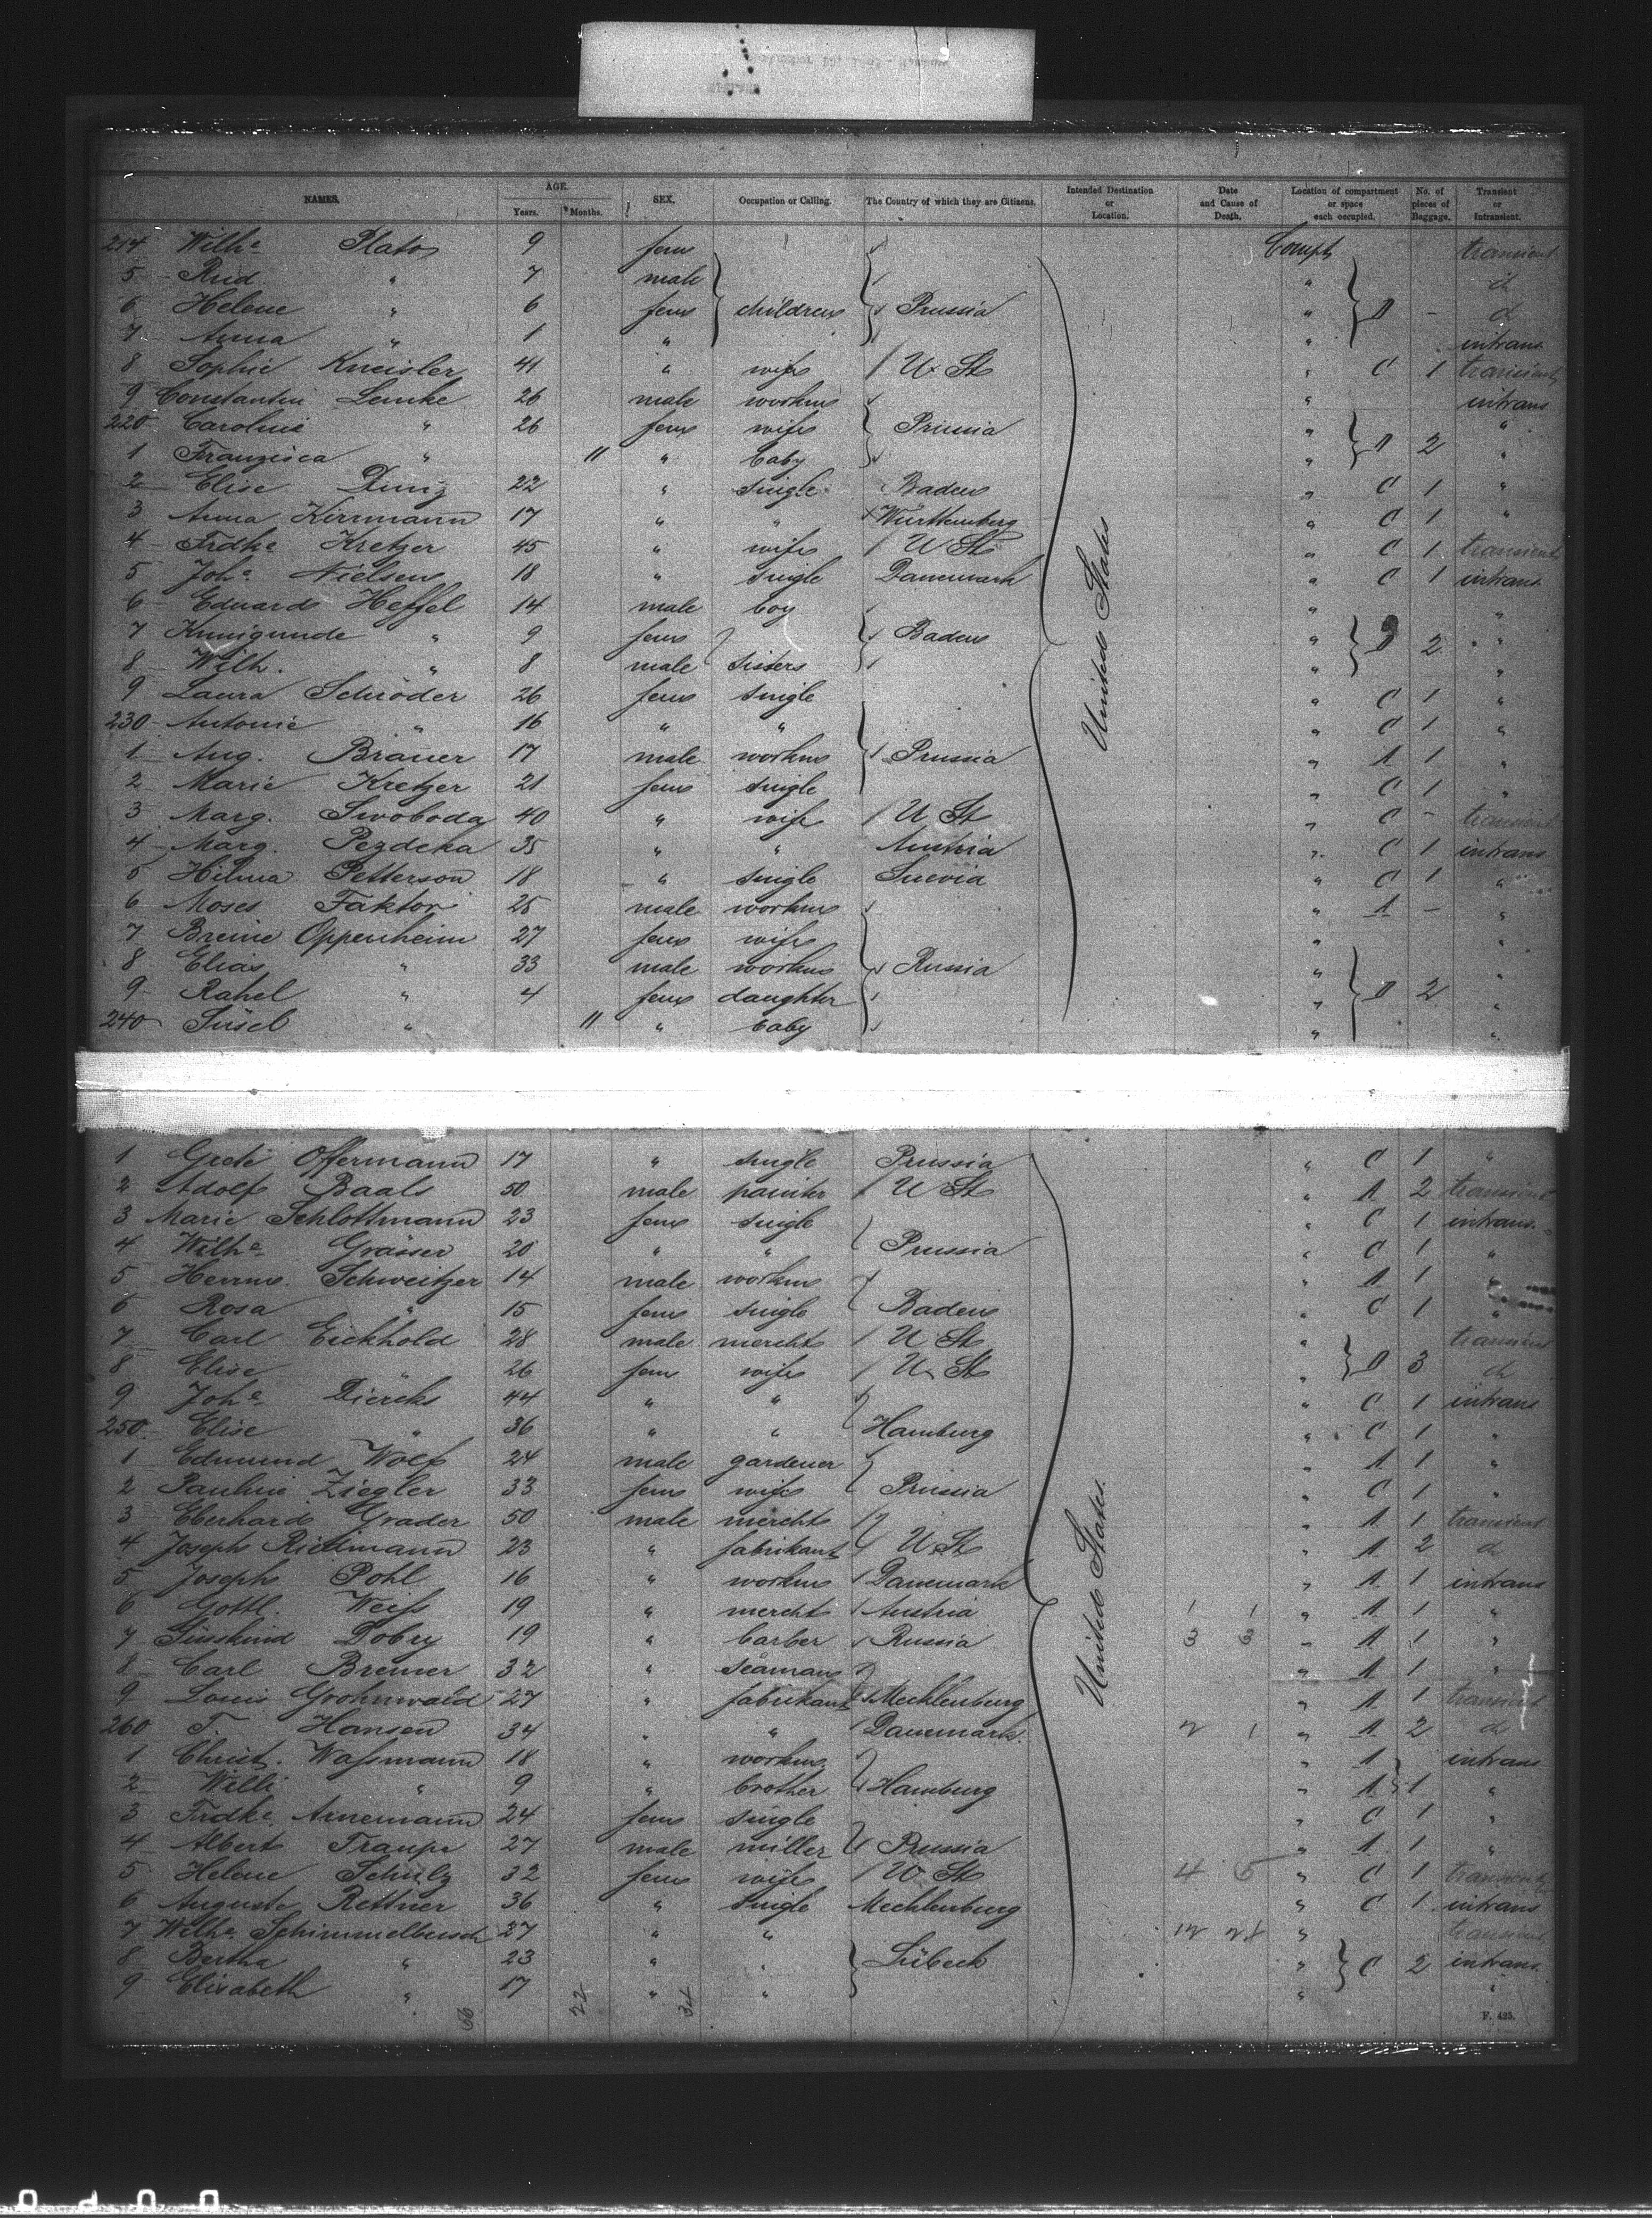 NAMES. AGE. Years. Months. SEX. Occupation or Calling. The Country of which they are Citizens. Intended Destination or Location. Date and Cause of Death. Location of compartment or space each occupied. No. of pieces of Baggage. Transient or Intransient.
214 Wilhe Plato 9 fem Compt transient
5 " 7 male " d
6 Helene " 6 fem children Prussia " D - d
7 Anna " 1 " " intrans
8 Sophie Kneisler 41 " wife U. St " C 1 transient
9 Constantin Lemke 26 male workm " intrans
220 Caroline " 26 fem wife Prussia " D 2 "
1 Franzisca " 11 " baby " "
2 Elise 22 " single Baden " C 1 "
3 Anna Kirrmann 17 " " Württemberg " C 1 "
4 Frdke Kretzer 45 " wife U St " C 1 transient
5 Johe Nielsen 18 " single Danemark " C 1 intrans
6 Eduard Heffel 14 male boy " "
7 Kunigunde " 9 fem Baden " D 2 "
8 Wilh. " 8 male sisters " "
9 Laura Schröder 26 fem single " C 1 "
230 Antonie " 16 " " " C 1 "
1 Aug. Bräuer 17 male workm Prussia " A 1 "
2 Marie Kretzer 21 fem single " C 1 "
3 Marg. Swoboda 40 " wife U St " C - transient
4 Marg. Pezdeka 35 " " Austria " C 1 intrans
5 Hilma Petterson 18 " single Suevia " C 1 "
6 Moses Faktor 25 male workm " A - "
7 Breine Oppenheim 27 fem wife " "
8 Elias " 33 male workm Russia " "
9 Rahel " 4 fem daughter " D 2 "
240 Süsel " 11 " baby " "
United States
1 Grete Offermann 17 " single Prussia " C 1 "
2 Adolf Baals 50 male painter U St " A 2 transient
3 Marie Schlottmann 23 fem single " C 1 intrans.
4 Wilhe Grässer 20 " " Prussia " C 1 "
5 Herrm. Schweitzer 14 male workm " A 1 "
6 Rosa " 15 fem single Baden " C 1 "
7 Carl Eickhold 28 male mercht U St " transient
8 Elise " 26 fem wife U. St " D 3 d
9 Johe Diercks 44 " " " C 1 intrans
250 Elise " 36 " " Hamburg " C 1 "
1 Edmund Wolf 24 male gardener " A 1 "
2 Pauline Ziegler 33 fem wife Prussia " C 1 "
3 Eberhard Grader 50 male mercht " A 1 transient
4 Joseph 23 " fabrikant U. St " A 2 d
5 Joseph Pohl 16 " workm Danemark " A 1 intrans
6 Gottl. Weiss 19 " mercht Austria 1 1 " A 1 "
7 Süsskind Dobry 19 " barber Russia 3 3 " A 1 "
8 Carl Bremer 32 " seaman " A 1 "
9 Louis Grohnwald 27 " fabrikant Mecklenburg " A 1 transient
260 T. Hansen 34 " " Danemark. 2 1 " A 2 d
1 Christ. Wassmann 18 " workm " A intrans
2 Willi " 9 " brother Hamburg " A 1 "
3 Frdke Arnemann 24 fem single " C 1 "
4 Albert Traupe 27 male miller Prussia " A 1 "
5 Helene Schulz 32 fem wife U. St 4 5 " C 1 transient
6 Auguste Rettner 36 " single Mecklenburg " C 1 intrans
7 Wilhe Schimmelbusch 27 " " 12 " transient
8 Bertha " 23 " " Lübeck " C 2 intrans.
9 Elisabeth " 17 " " " "
United States
22 34
F. 425.